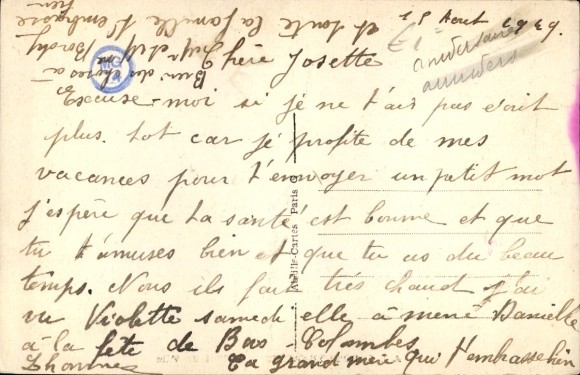 15 Août 1949.
Chère Josette
aniversaire
annivers
Excuse-moi si je ne t'ais pas écrit
plus. tot car je profite de mes
vacances pour t'envoyer un petit mot
j'espère que ta santé est bonne et que
tu t'amuses bien et que tu as du beau
temps. Nous ils fait très chaud j'ai
vu Violette samedi elle à mené Danielle
à la fête de Bas-Colombes
Ta grand mère qui t'embrasse bien
Bien des choses à
et toute la famille t'embrasse
bien
Abeille-Cartes Paris